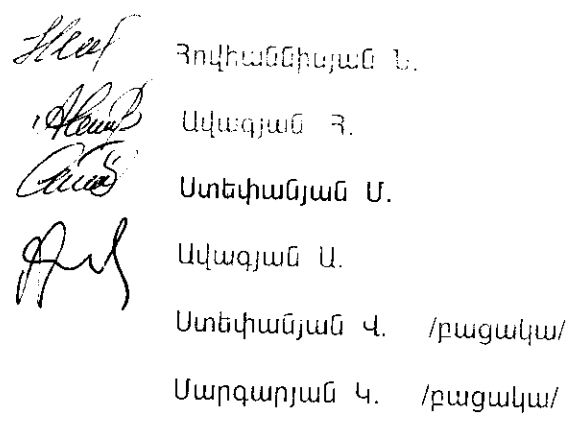 Հովհաննիսյան Ն.
Ավագյան Հ.
Ստեփանյան Մ.
Ավագյան Ա.
Ստեփանյան Վ. /բացակա/
Մարգարյան Կ. /բացակա/